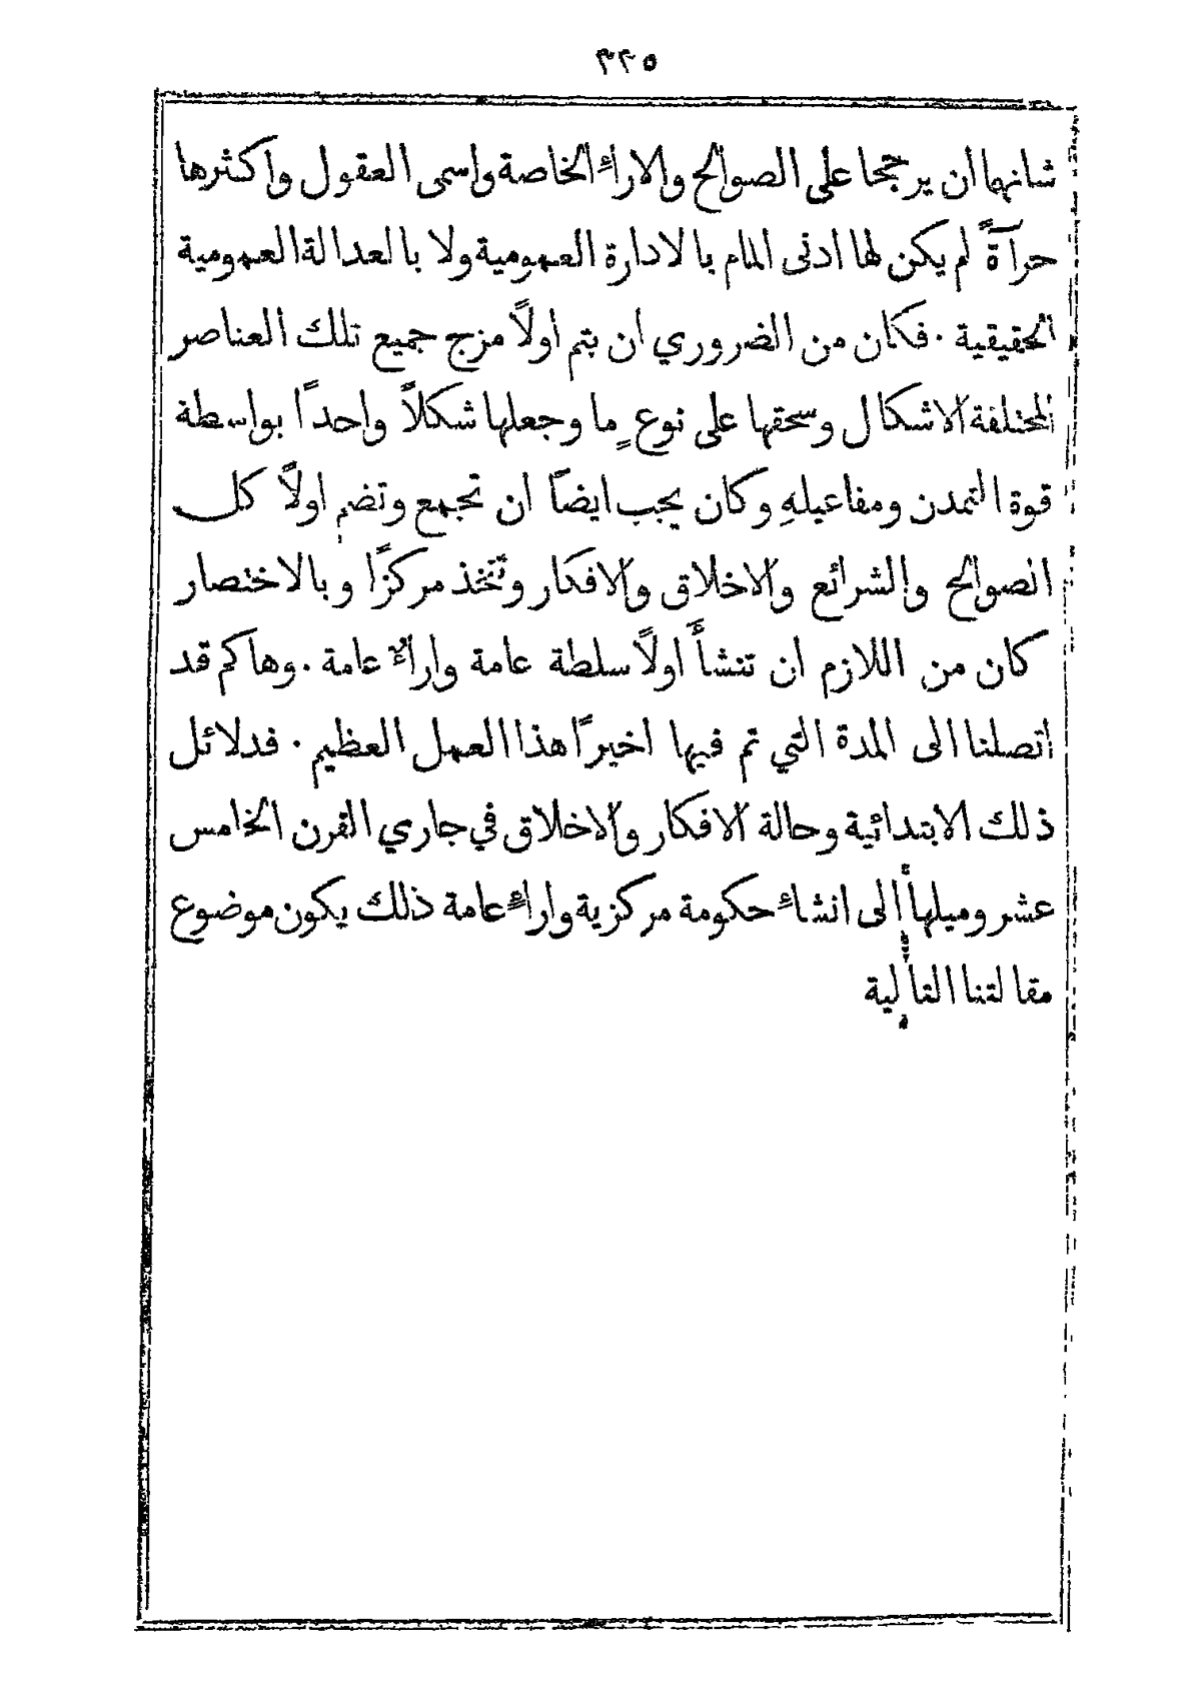 ٣٢٥
شانهما ان يرجحا على الصوالح والاراءِ الخاصة واسمى العقول واكثرها
حرآةً لم يكن لها ادنى المام بالادارة العمومية ولا بالعدالة العمومية
الحقيقية . فكان من الضروري ان يتم اولاً مزج جميع تلك العناصر
المختلفة الاشكال وسحقها على نوعٍ ما وجعلها شكلاً واحداً بواسطة
قوة التمدن ومفاعيلهِ وكان يجب ايضاً ان تجمع وتضم اولاً كل
الصوالح والشرائع والاخلاق والافكار وتتخذ مركزًا وبالاختصار
كان من اللازم ان تنشأَ اولاً سلطة عامة واراءٌ عامة . وهاكم قد
اتصلنا الى المدة التي تم فيها اخيرًا هذا العمل العظيم . فدلائل
ذلك الابتدائية وحالة الافكار والاخلاق في جاري القرن الخامس
عشر وميلها إلى انشاءِ حكومة مركزية واراءٍ عامة ذلك يكون موضوع
مقالتنا التالية